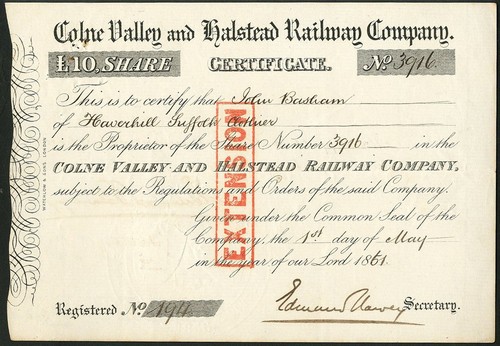 Colne Valley and Halstead Railway Company.
£10, SHARE CERTIFICATE. No 3916.
This is to certify that John Basham
of Haverhill Suffolk
is the Proprietor of the Share Number 3916 in the
COLNE VALLEY AND HALSTEAD RAILWAY COMPANY,
subject to the Regulations and Orders of the said Company.
Given under the Common Seal of the
Company, the 1st day of May
in the year of our Lord 1861.
Registered No 194
Edmund Harvey Secretary.
EXTENSION
WATERLOW & SONS LONDON